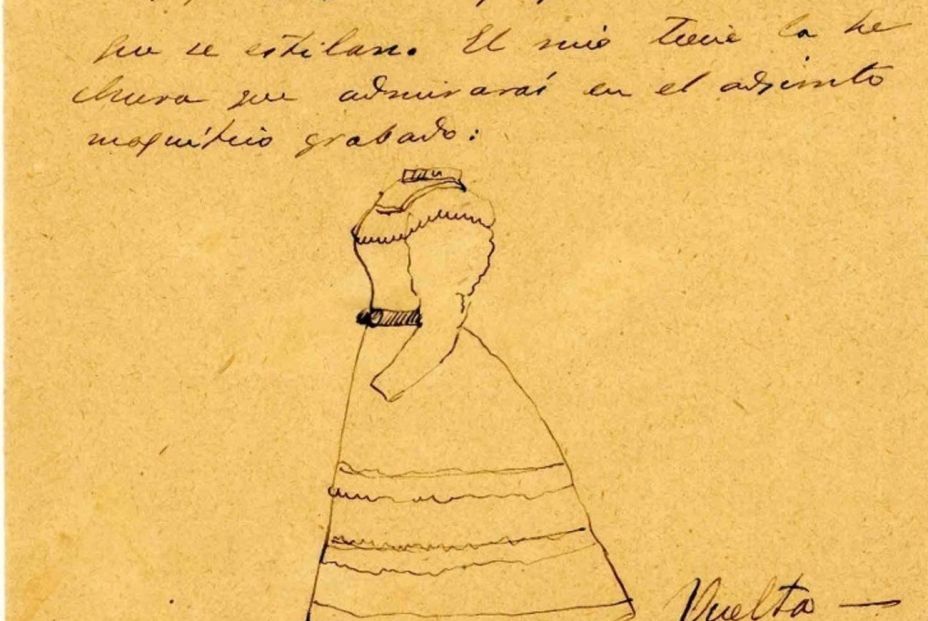 que se estilan. El mio tiene la he
chura que admirarás en el adjunto
magnífico grabado:
Vuelta —